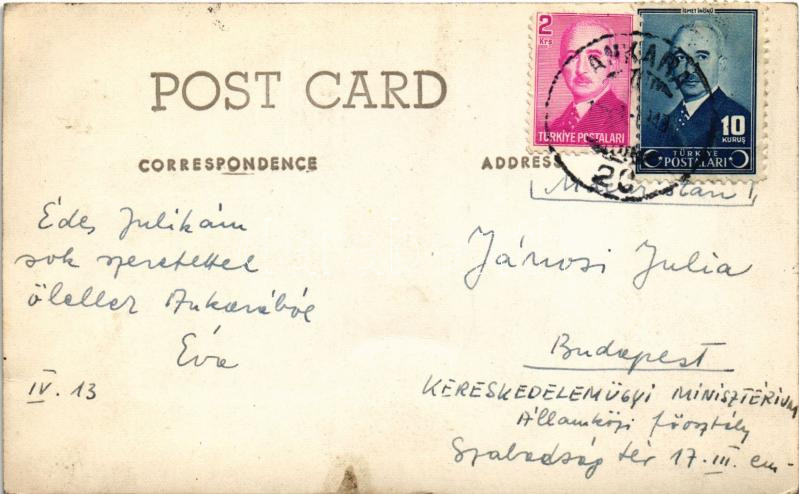 İSMET İNÖNÜ
2
Krs
TÜRKİYE POSTALARI
10
KURUŞ
TÜRKİYE
POSTALARI
ANKARA
20
POST CARD
CORRESPONDENCE
ADDRESS
Édes Julikám
sok szeretettel
ölellek Ankarából
Éva
IV. 13
Jánosi Julia
Budapest
KERESKEDELEMÜGYI MINISZTÉRIUM
Államközi főosztály
Szabadság tér 17. III. em.